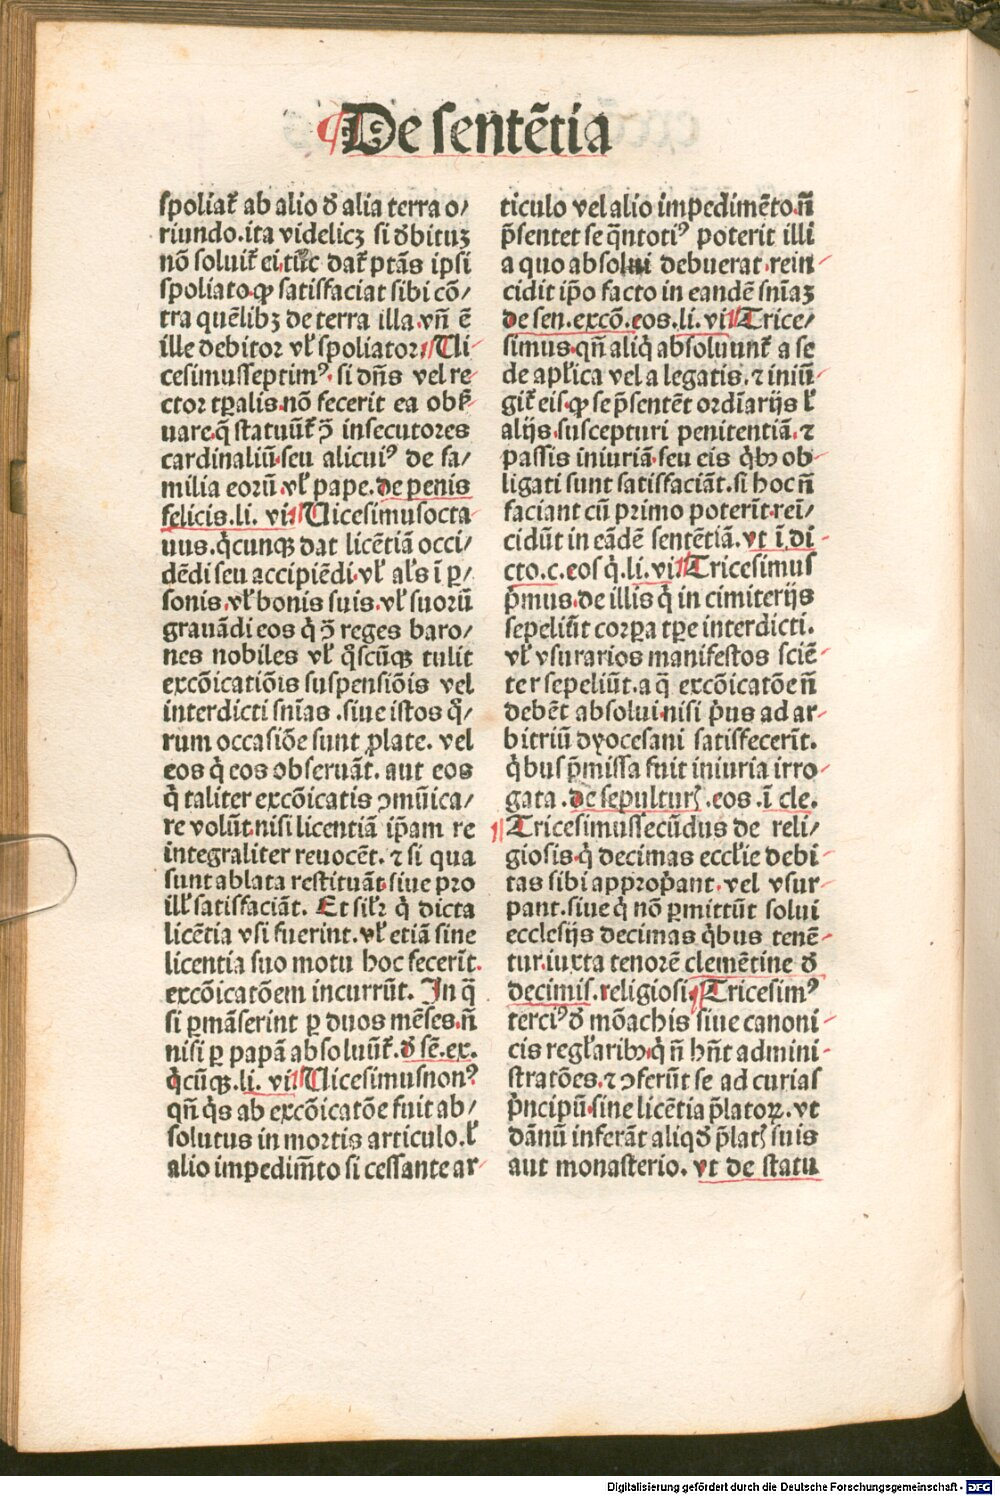 ¶De sentẽtia
spoliat᷑ ab alio ꝺ̕ alia terra o/
riundo.ita videlicꝫ si ꝺ̕bituꝫ
nõ soluit᷑ ei,tũc dat᷑ ptãs ipsi
spoliato.ꝙ satisfaciat sibi cõ/
tra quẽlibꝫ de terra illa.vñ ẽ
ille debitor vł spoliator.¶Ui-
cesimusseptimꝰ. si dñs vel re-
ctor tꝑalis.nõ fecerit ea obẞ-
uare.q̃ statuũt᷑ ꝯ̃ insecutores
cardinaliũ.seu alicuiꝰ de fa/
milia eorũ.vł pape.de penis
felicis.li. vi.¶Uicesimusocta-
uus.q̇cunqꝫ dat licẽtiã occi/
dẽdi seu accipiẽdi.vł als̃ ĩ ꝑ/
sonis.vł bonis suis.vł suorũ
grauãdi eos q̇ ꝯ̃ reges baro/
nes nobiles vł q̃scũqꝫ tulit
excõicatiõis suspensiõis vel
interdicti sñias .siue istos q̃/
rum occasiõe sunt ꝓlate. vel
eos q̇ eos obseruãt. aut eos
q̇ taliter excõicatis ꝯmũica/
re volũt.nisi licentiã ip̃am re
integraliter reuocẽt. ⁊ si qua
sunt ablata restituãt.siue pro
ill᷑ satisfaciãt. Et sil̃r q̇ dicta
licẽtia vsi fuerint.vł etiã sine
licentia suo motu hoc fecerĩt.
excõicatõem incurrũt. In q̃
si ꝑmãserint ꝑ duos mẽses.ñ
nisi ꝑ papã absoluũt᷑.ꝺ̕ sẽ.ex.
q̇cũqꝫ.li. vi.¶Uicesimusnonꝰ
qñ q̇s ab excõicatõe fuit ab/
solutus in mortis articulo.ł
alio impedim̃to si cessante ar-
ticulo vel alio impedimẽto.ñ
p̃sentet se q̃ntotiꝰ poterit illi
a quo absolui debuerat.rein-
cidit ip̃o facto in eandẽ sñiaꝫ
de sen.excõ.eos.li. vi.¶Trice/
simus.qñ aliq̇ absoluunt᷑ a se
de apl̃ica vel a legatis.⁊ iniũ-
git᷑ eis.ꝙ se p̃sentẽt ordĩarijs ł
alijs.suscepturi penitentiã.⁊
passis iniuriã.seu eis q̇bꝰ ob-
ligati sunt satisfaciãt.si hoc ñ
faciant cũ primo poterĩt.reĩ/
cidũt in eãdẽ sentẽtiã.vt ĩ di-
cto.c.eos q̇.li.vi.¶Tricesimus
p̃mus.de illis q̇ in cimiterijs
sepeliũt corꝑa tꝑe interdicti.
vł vsurarios manifestos sciẽ-
ter sepeliũt.a q̃ excõicatõe ñ
debẽt absolui.nisi p̃us ad ar-
bitriũ dyocesani satisfecerĩt.
q̇bus p̃missa fuit iniuria irro-
gata.de sepulturꝭ.eos .ĩ cle.
¶Tricesimussecũdus de reli/
giosis.q̇ decimas eccl̃ie debi-
tas sibi approp̃ant.vel vsur-
pant.siue q̇ nõ ꝑmittũt solui
ecclesijs decimas q̇bus tenẽ-
tur.iuxta tenorẽ clemẽtine ꝺ̕
decimis.religiosi.¶Tricesimꝰ
terciꝰ ꝺ̕ mõachis siue canoni-
cis regl̃aribꝰ.q̇ ñ hñt admini-
stratões.⁊ ꝯferũt se ad curias
p̃ncipũ.sine licẽtia p̃latoꝝ.vt
dãnũ inferãt aliqꝺ̕ p̃latꝭ suis
aut monasterio. vt de statu
Digitalisierung gefördert durch die Deutsche Forschungsgemeinschaft - DFG